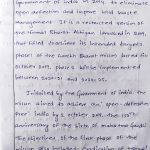 Government of India in 2014 to eliminate
open defecation and improve solid waste
management. It is a restructured version of
the Nirmal Bharat Abhiyan launched in 2009,
that failed to achieve its intended targets.
phase of the Swachh Bharat Mission lasted till
october 2019. phase 2 will be implemented
between 2020-21 and 2024-25.
Initiated by the Government of India, the
mission aimed to achieve an "open-defecation
free" India by 2 october 2019, the 150th
anniversary of the birth of mahatma Gandhi
The objectives of the first phase of the